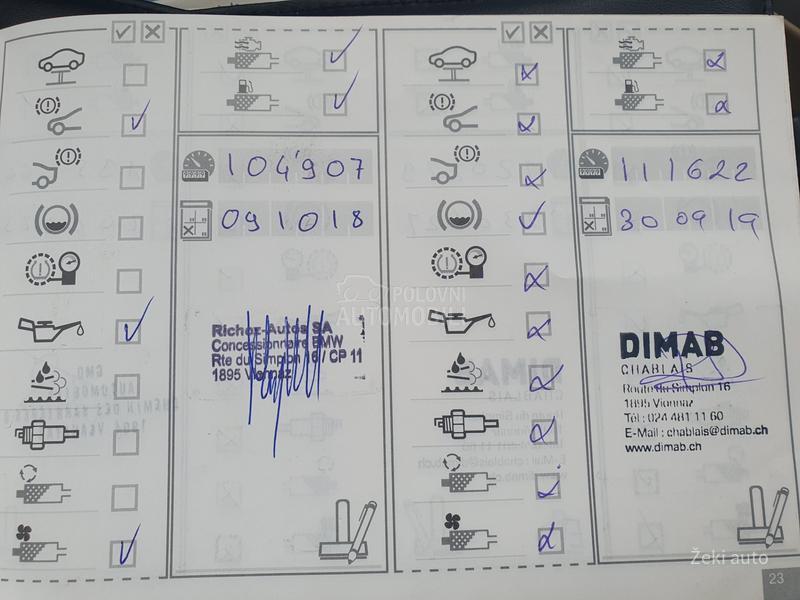 104'907
091018
Richoz-Autos SA
Concessionnaire BMW
Rte du Simplon 16 / CP 11
1895 Vionnaz
111622
30 09 19
DIMAB
CHABLAIS
Route du Simplon 16
1895 Vionnaz
Tél : 024 481 11 60
E-Mail : chablais@dimab.ch
www.dimab.ch
POLOVNI
AUTOMOBILI
Žeki auto
23